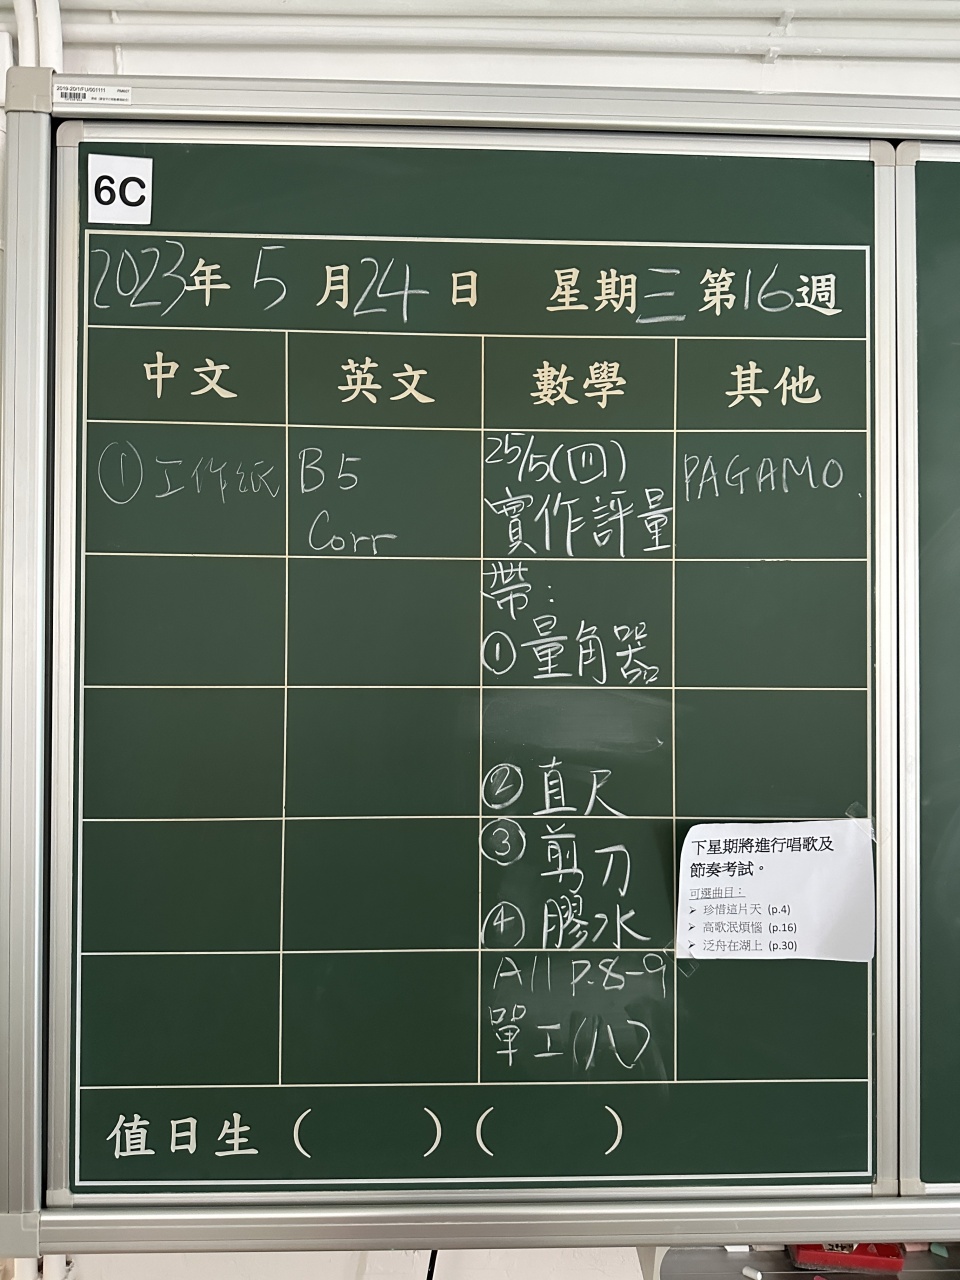 2019-20/1/FU/001111
6C
2023年 5 月 24 日 星期三 第16週
中文 英文 數學 其他
①工作紙
B5
Corr
25/5(四)
實作評量
帶:
①量角器
②直尺
③剪刀
④膠水
A11 P.8-9
單工(八)
PAGAMO.
下星期將進行唱歌及
節奏考試。
可選曲目:
➢ 珍惜這片天 (p.4)
➢ 高歌泯煩惱 (p.16)
➢ 泛舟在湖上 (p.30)
值日生 ( ) ( )